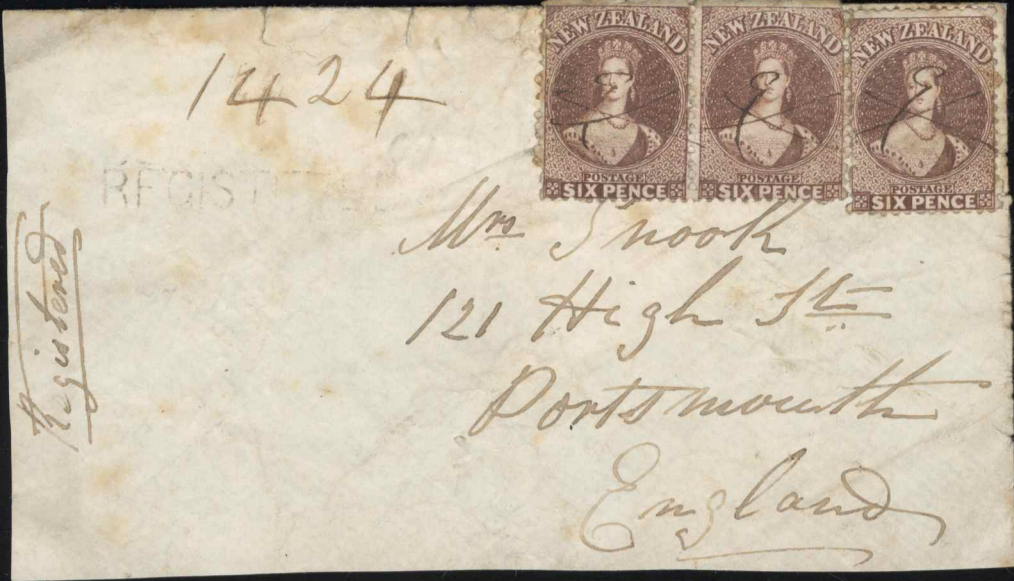 NEW ZEALAND
POSTAGE
SIX PENCE
NEW ZEALAND
POSTAGE
SIX PENCE
NEW ZEALAND
POSTAGE
SIX PENCE
1424
REGISTERED
Registered
Mrs Snook
121 High St
Portsmouth
England